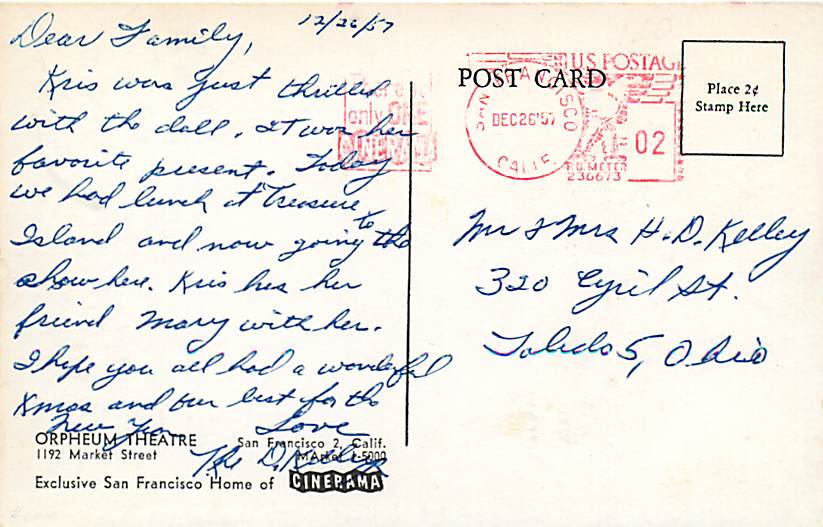 12/26/57
Dear Family,
Kris was just thrilled
with the doll. It was her
favorite present. Today
we had lunch at Treasure
Island and now going to the
show here. Kris has her
friend Mary with her.
I hope you all had a wonderful
Xmas and our best for the
New Year
Love
The D.
ORPHEUM THEATRE
1192 Market Street
San Francisco 2, Calif.
MArket 1-5000
Exclusive San Francisco Home of CINERAMA
There's
only ONE
CINERAMA
POST CARD
SAN FRANCISCO
DEC 26 '57
CALIF.
U.S. POSTAGE
02
P.B. METER
236673
Place 2¢
Stamp Here
Mr & Mrs H. D. Kelley
320 Cyril St.
Toledo 5, Ohio